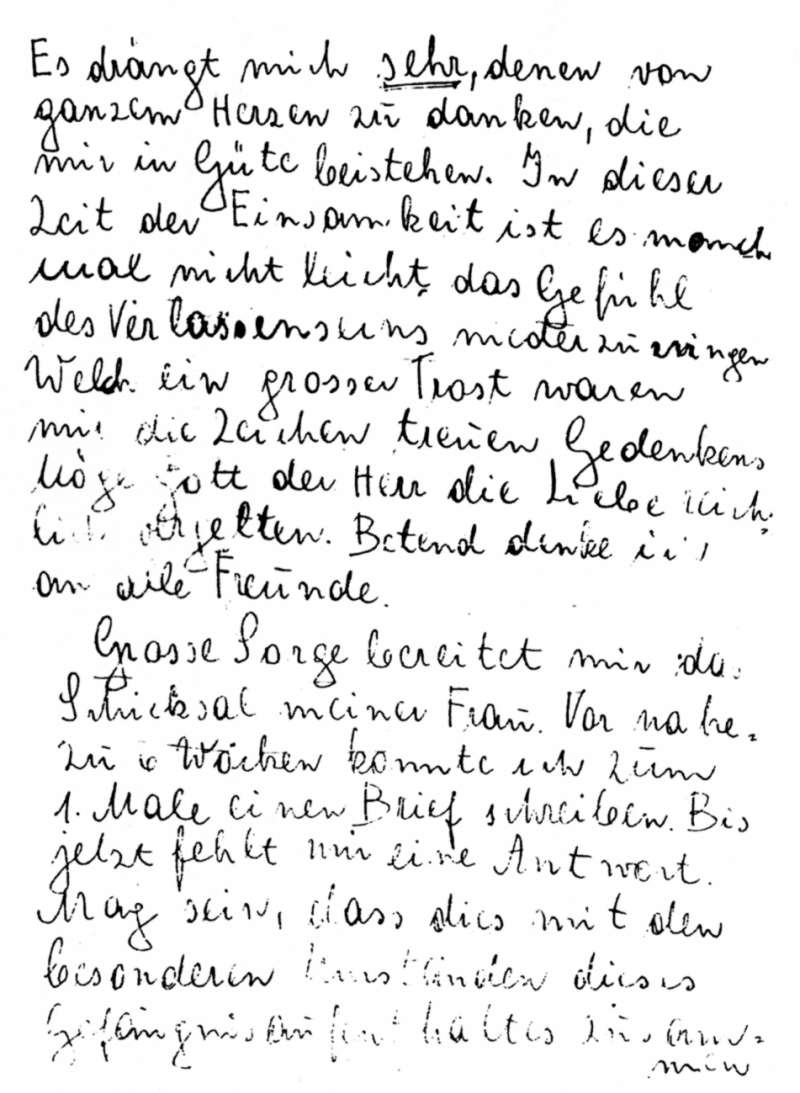 Es drängt mich sehr, denen von
ganzem Herzen zu danken, die
mir in Güte beistehen. In dieser
Zeit der Einsamkeit ist es manch
mal nicht leicht, das Gefühl
des Verlassenseins niederzuringen
Welch ein grosser Trost waren
mir die Zeichen treuen Gedenkens
Möge Gott der Herr die Liebe reich-
lich vergelten. Betend denke ich
an alle Freunde.
Grosse Sorge bereitet mir das
Schicksal meiner Frau. Vor nahe-
zu 6 Wochen konnte ich zum
1. Male einen Brief schreiben. Bis
jetzt fehlt mir eine Antwort.
Mag sein, dass dies mit den
besonderen Umständen dieses
Gefängnisaufenthaltes zusam-
men